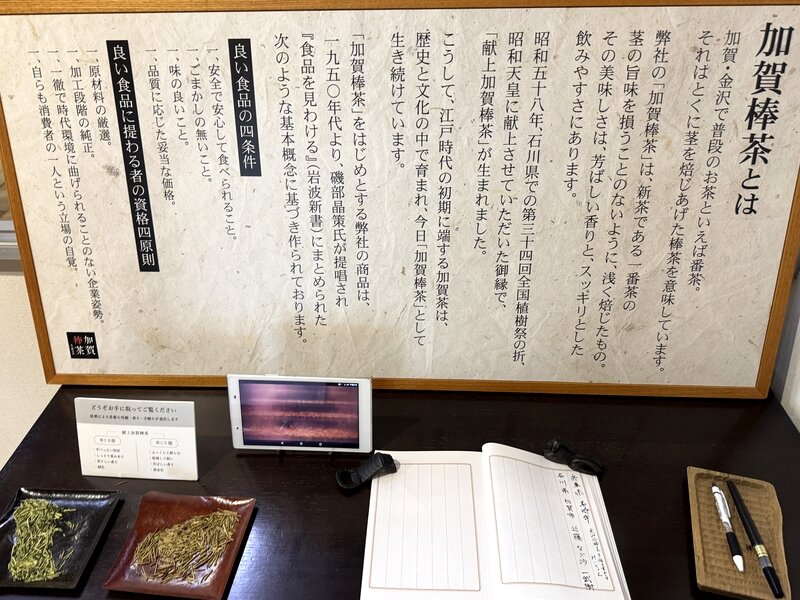 加賀棒茶とは
加賀・金沢で普段のお茶といえば番茶。
それはとくに茎を焙じあげた棒茶を意味しています。
弊社の「加賀棒茶」は、新茶である一番茶の
茎の旨味を損うことのないように、浅く焙じたもの。
その美味しさは、芳ばしい香りと、スッキリとした
飲みやすさにあります。
昭和五十八年、石川県での第三十四回全国植樹祭の折、
昭和天皇に献上させていただいた御縁で、
「献上加賀棒茶」が生まれました。
こうして、江戸時代の初期に端する加賀茶は、
歴史と文化の中で育まれ、今日「加賀棒茶」として
生き続けています。
「加賀棒茶」をはじめとする弊社の商品は、
一九五〇年代より、磯部晶策氏が提唱され
『食品を見わける』（岩波新書）にまとめられた
次のような基本概念に基づき作られております。
良い食品の四条件
一、安全で安心して食べられること。
一、ごまかしの無いこと。
一、味の良いこと。
一、品質に応じた妥当な価格。
良い食品に携わる者の資格四原則
一、原材料の厳選。
一、加工段階の純正。
一、一徹で時代環境に曲げられることのない企業姿勢。
一、自らも消費者の一人という立場の自覚。
加賀
棒茶
どうぞお手に取ってご覧ください
献上加賀棒茶
焙じる前
焙じた後
石川県